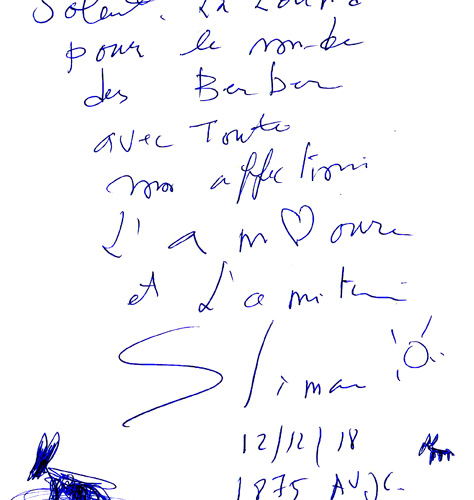 pour le monde
des Berber
avec Toute
mon affection
L'am♡oure
et L'amitie
Sliman
12/12/18
1875 AV.JC.